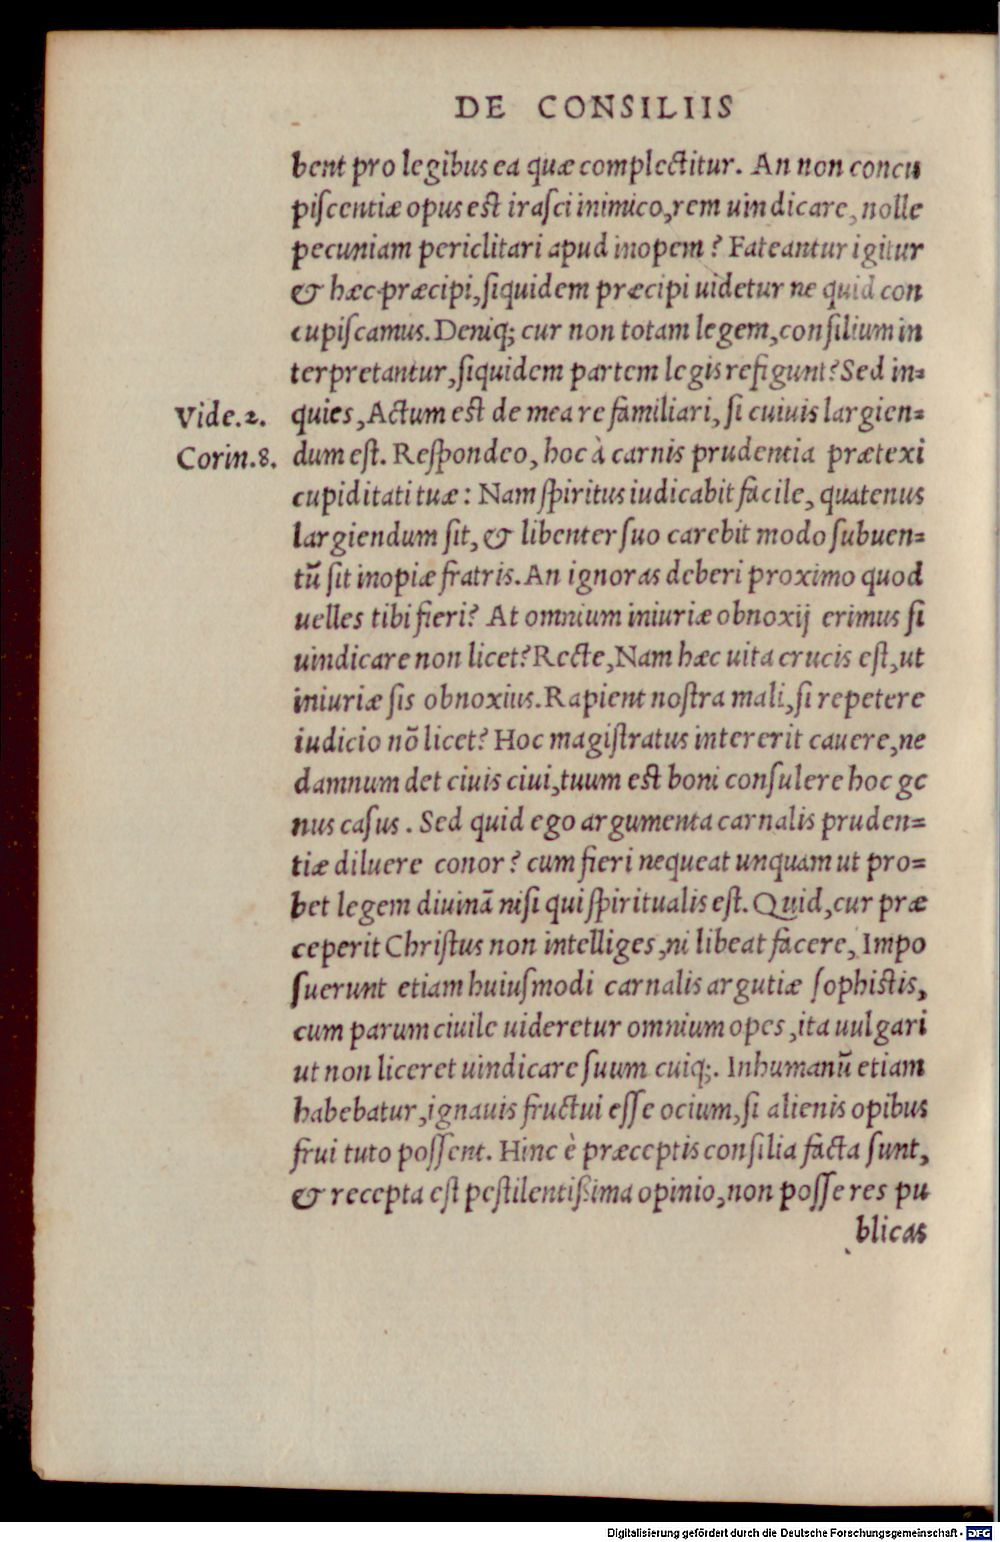 DE CONSILIIS
bent pro legibus ea quæ complectitur. An non concu
piſcentiæ opus est iraſci inimico, rem uindicare, nolle
pecuniam periclitari apud inopem? Fateantur igitur
& hæc præcipi, ſiquidem præcipi uidetur ne quid con
cupiſcamus. Deniq; cur non totam legem, conſilium in
terpretantur, ſiquidem partem legis refigunt? Sed in=
Vide.2. quies, Actum est de mea re familiari, ſi cuiuis largien=
Corin.8. dum eſt. Reſpondeo, hoc à carnis prudentia prætexi
cupiditati tuæ: Nam ſpiritus iudicabit facile, quatenus
largiendum ſit, & libenter ſuo carebit modo ſubuen=
tũ ſit inopiæ fratris. An ignoras deberi proximo quod
uelles tibi fieri? At omnium iniuriæ obnoxij erimus ſi
uindicare non licet? Recte, Nam hæc uita crucis eſt, ut
iniuriæ ſis obnoxius. Rapient noſtra mali, ſi repetere
iudicio nõ licet? Hoc magiſtratus intererit cauere, ne
damnum det ciuis ciui, tuum est boni conſulere hoc ge
nus caſus. Sed quid ego argumenta carnalis pruden=
tiæ diluere conor? cum fieri nequeat unquam ut pro=
bet legem diuinã niſi qui ſpiritualis eſt. Quid, cur præ
ceperit Chriſtus non intelliges, ni libeat facere, Impo
ſuerunt etiam huiuſmodi carnalis argutiæ ſophistis,
cum parum ciuile uideretur omnium opes, ita uulgari
ut non liceret uindicare ſuum cuiq;. Inhumanũ etiam
habebatur, ignauis fructui eſſe ocium, ſi alienis opibus
frui tuto poſſent. Hinc è præceptis conſilia facta ſunt,
& recepta eſt peſtilentißima opinio, non poſſe res pu
blicas
Digitalisierung gefördert durch die Deutsche Forschungsgemeinschaft - DFG